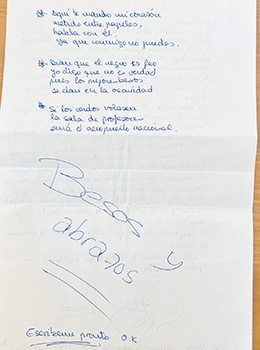 * Aquí te mando mi corazón
metido entre papeles,
habla con él.
ya que conmigo no puedes.
* Dicen que el negro es feo
yo digo que no es verdad
pues los mejores besos
se dan en la oscuridad
* Si los cerdos volasen
la sala de profesores
será el aeropuerto nacional.
Besos y
abrazos
Escríbeme pronto O.K